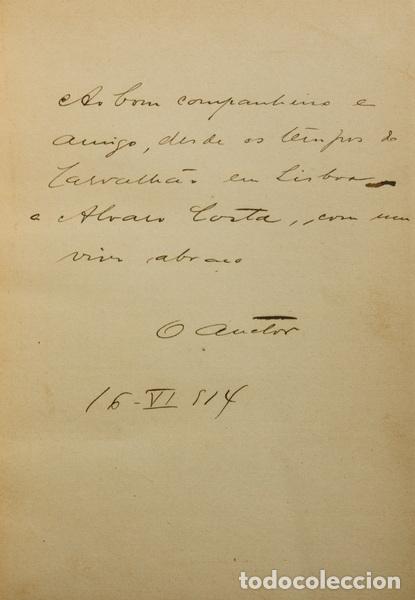 Ao bom companheiro e
amigo, desde os tempos do
Carvalhão em Lisboa
a Alvaro Costa, com um
vivo abraço
O Auctor
16-VI 914
todocoleccion